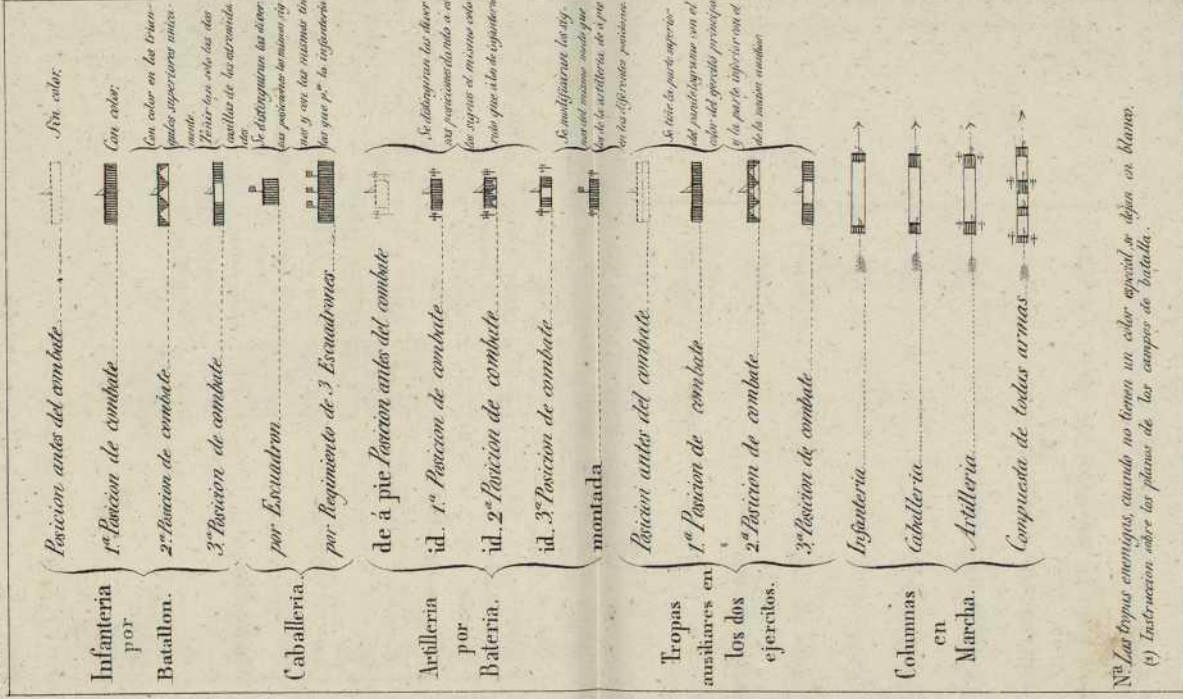 Infanteria
por
Batallon.
Posicion antes del combate
Sin color.
1ª Posicion de combate
Con color.
2ª Posicion de combate
Con color en los trian-
gulos superiores unica-
mente.
3ª Posicion de combate
Teñir tan solo las dos
casillas de las
Caballeria.
por Escuadron
por Regimiento de 3 Escuadrones
Se distinguiran las diver-
sas posiciones
nes y con las mismas
las que pª la infanteria
Artilleria
por
Bateria.
de á pie Posicion antes del combate
id. 1ª Posicion de combate
id. 2ª Posicion de combate
id. 3ª Posicion de combate
montada
Se distingiran las diver
sas posiciones dando a
los signos el mismo colo
rido que á los de infanteria
Se modificaran los sig-
nos del mismo modo que
los de la artilleria de á pie
en las diferentes posiciones.
Tropas
ausiliares en
los dos
ejercitos.
Posicion antes del combate
1ª Posicion de combate
2ª Posicion de combate
3ª Posicion de combate
Se tiñe la parte superior
del paralelogramo con el
color del ejercito principal
y la parte inferior con el
de la nacion
Columnas
en
Marcha.
Infanteria
Caballeria
Artilleria
Compuesta de todas armas
Nª Las tropas enemigas, cuando no tienen un color especial, se dejan en blanco.
Instruccion sobre los planos de los campos de batalla.